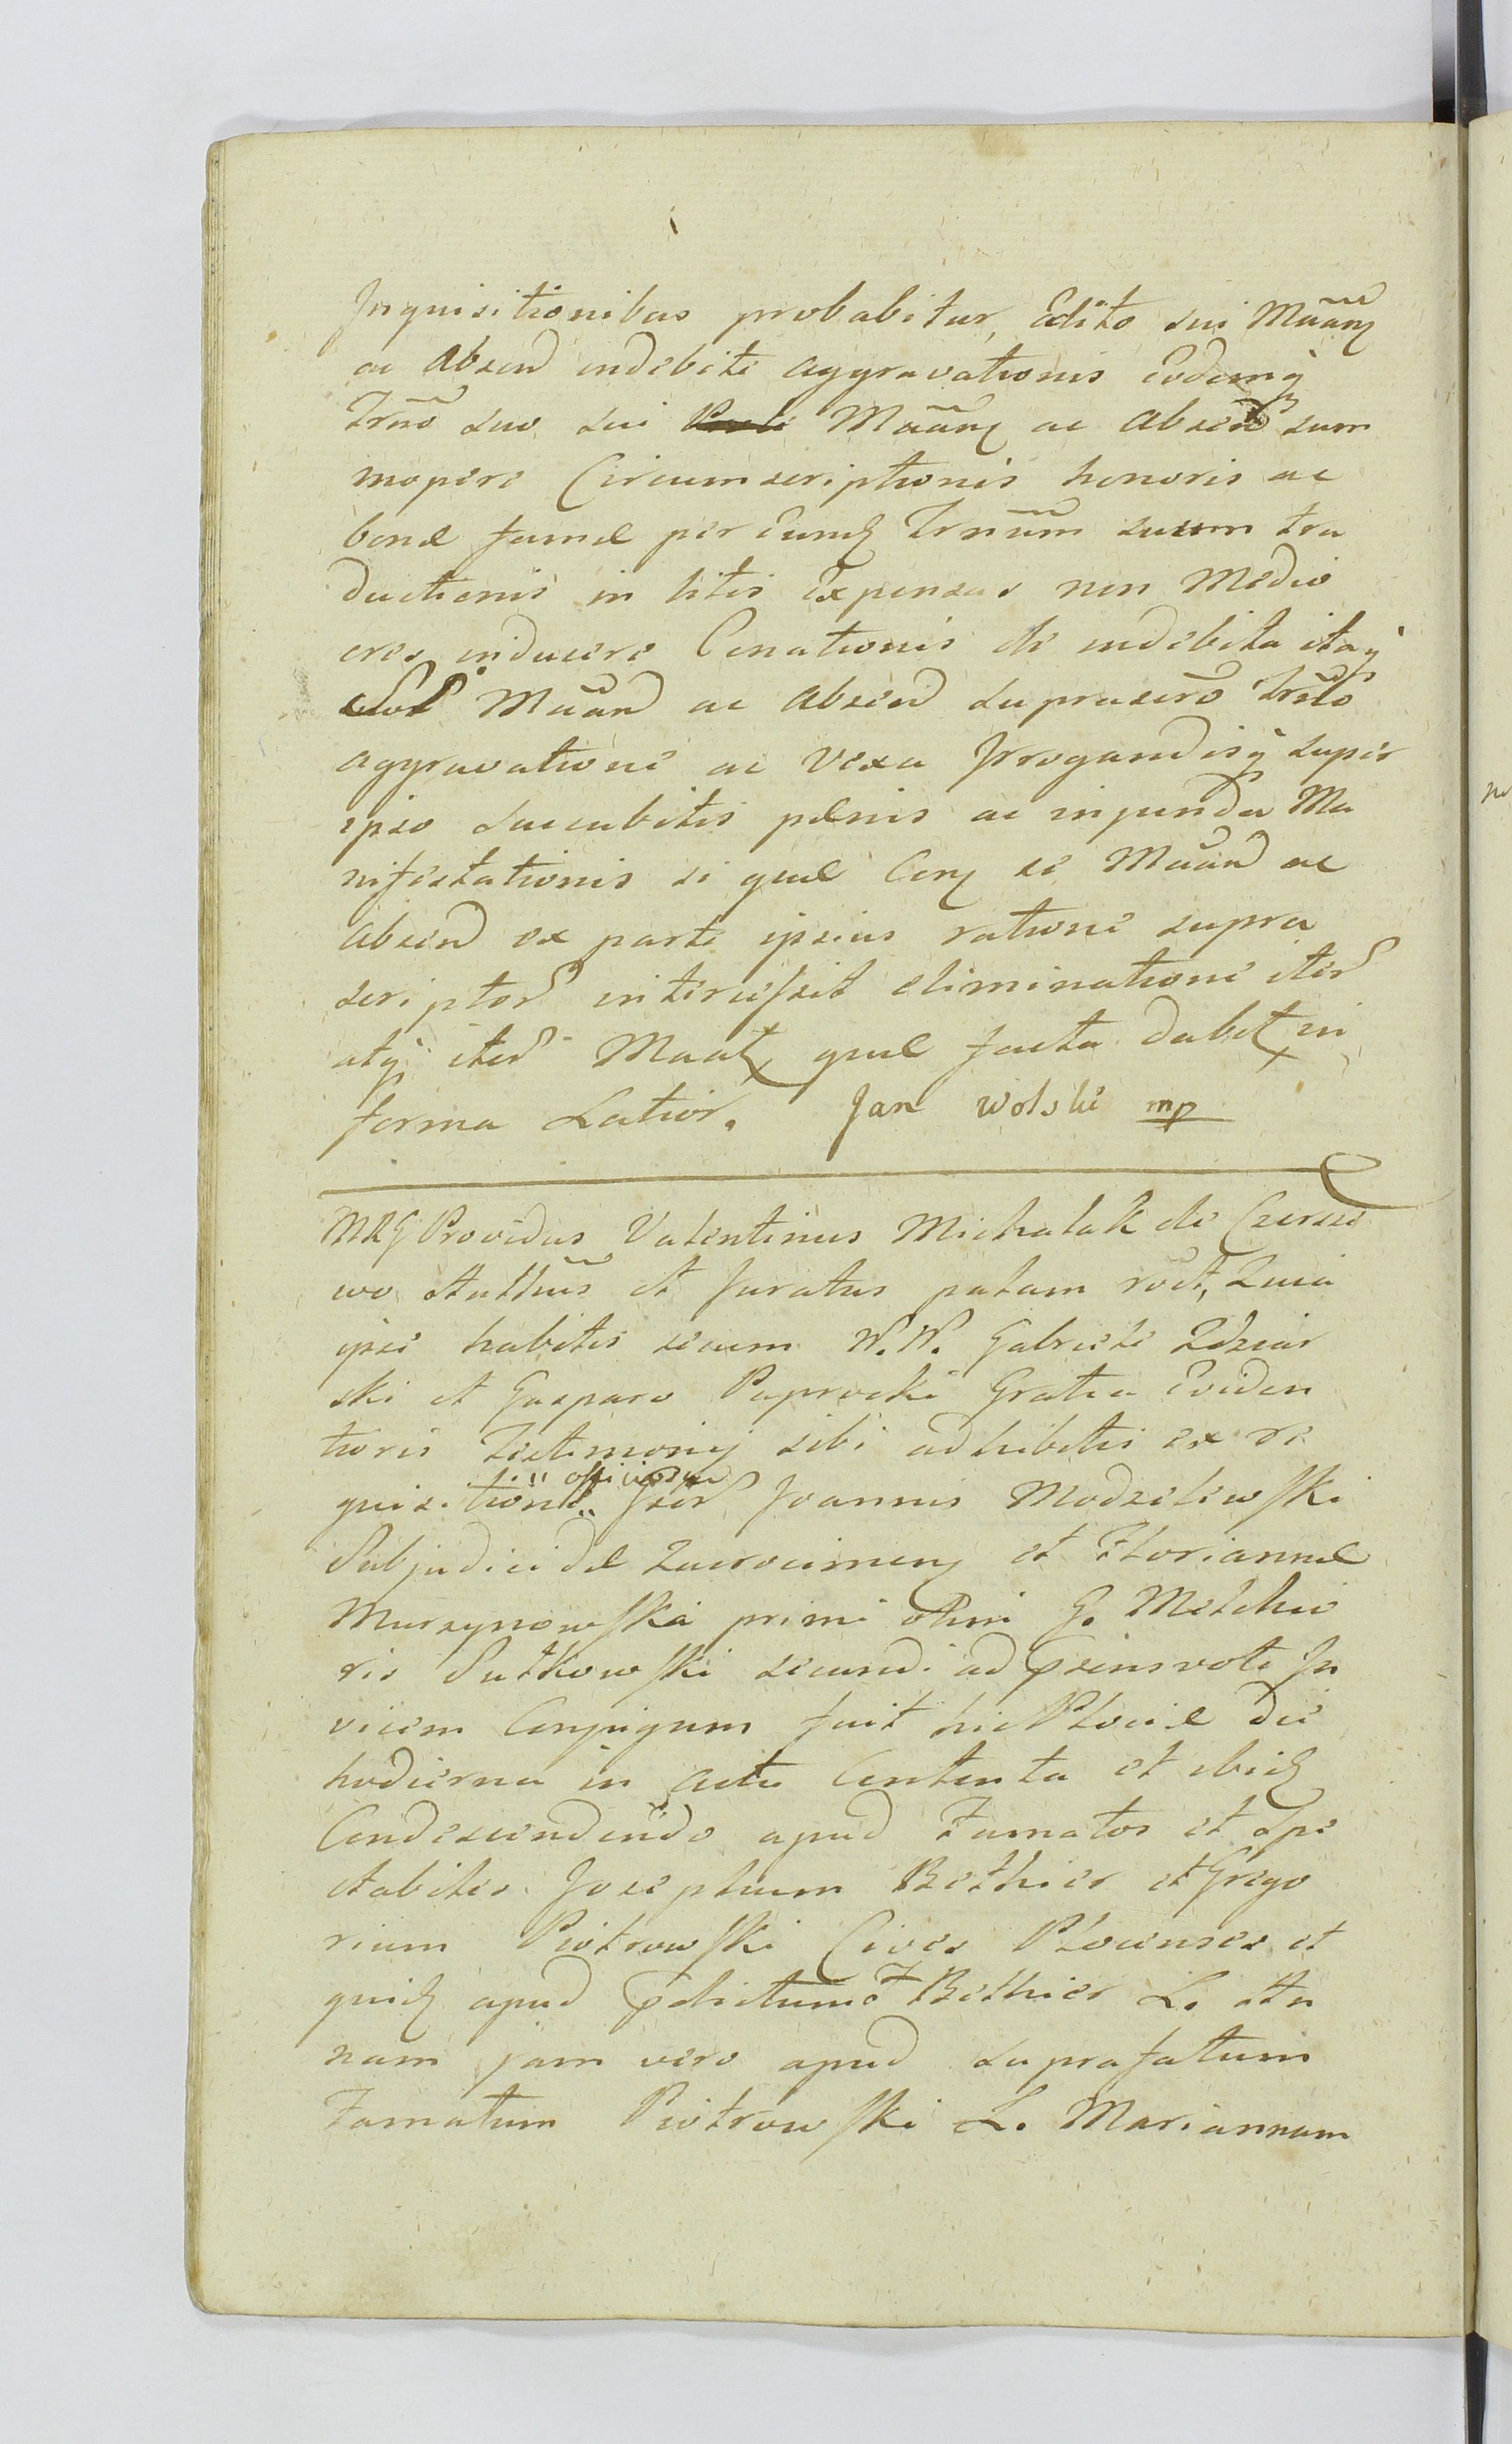 Inquisitionibus probabitur, Edito sui Mãanẽ
ac absend indebite aggravationis eodemq̃
Trm̃o suo sui Mãanẽ ac absend sum
mopere Circumscriptionis honoris ac
bonæ famæ per eundẽ Trm̃um suum tra
ductionis in litis Expensas non Medio
cres inducere Conationis de indebita itaq̃
Mãand ac absend suprascrõ
aggravatione ac vexa Irrogandisq̃ super
ipso succubitis pænis ac injunda Ma
nifestationis si quæ Con se Mãand ac
absend ex parte ipsius ratione supra
scriptor intercessit eliminatione iter
atq̃ iter Maat quæ facta dabet in
forma Latior. Jan Wolski mp
MRG Providus Valentinus Michalak de Czersze
wo et Juratus palam rõct, Quia
ipse habitis secum N.N. Gabriele Zdziar
ski et Gasparo Paprocki Gratia Eviden
tioris Testimonij sibi adhibitis ex re
quisitione officiosa Joannis Modzelewski
Subjudicidæ Zacrocimenẽ et Floriannæ
Murzynowska primi olim G. Melchio
ris Sutkowski secundi ad pr̃sens voti In
vicem Conjugum fuit hic Plociæ die
hodierna in actu Contenta et ibidẽ
Condescendendo apud Famatos et Spe
ctabiles Josephum Bethier et Grego
rium Piotrowski Cives Plocenses et
quidẽ apud F Bethier L. An
nam jam vero apud suprafatum
Famatum Piotrowski L. Mariannam